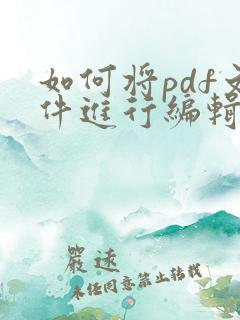 如何将pdf文
件進行編輯
嚴速
未经同意禁止转载